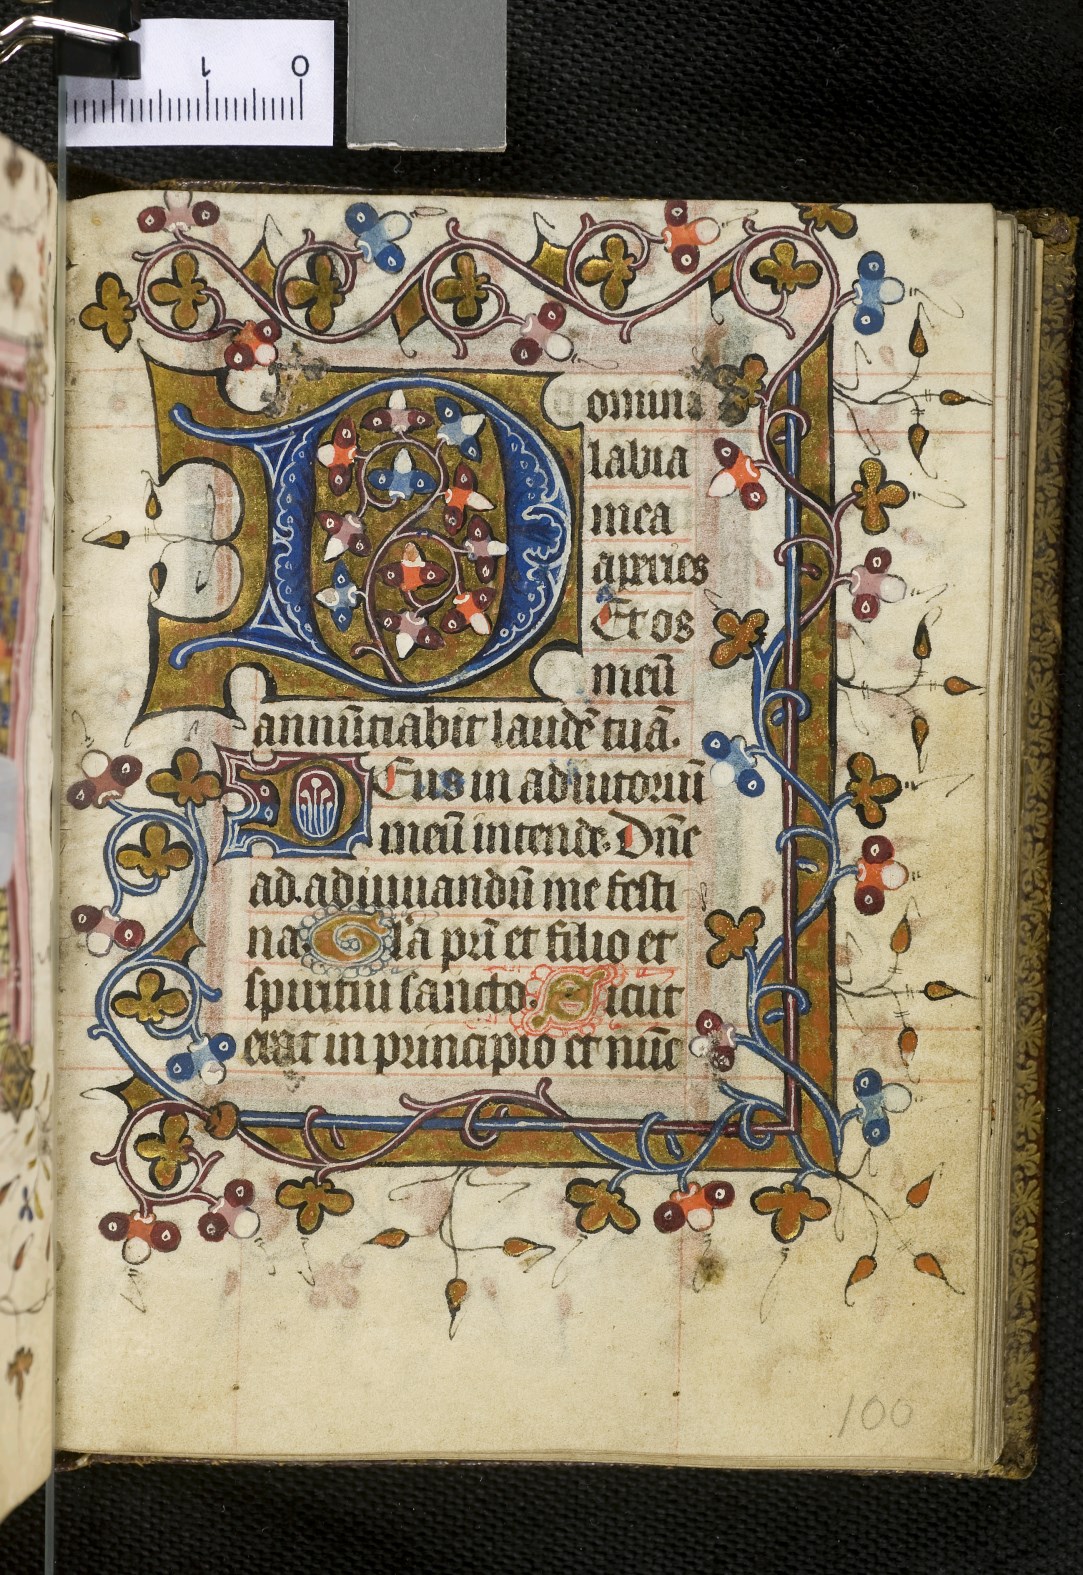 1 0
Domine
labia
mea
aperies
Et os
meū
annūtiabit laudē tuā.
Deus in adiutoriū
meū intende. Dn̄e
ad adiuuandū me festi
na. Gl'a pr̄i et filio et
spiritui sancto. Sicut
erat in principio et nūc
100